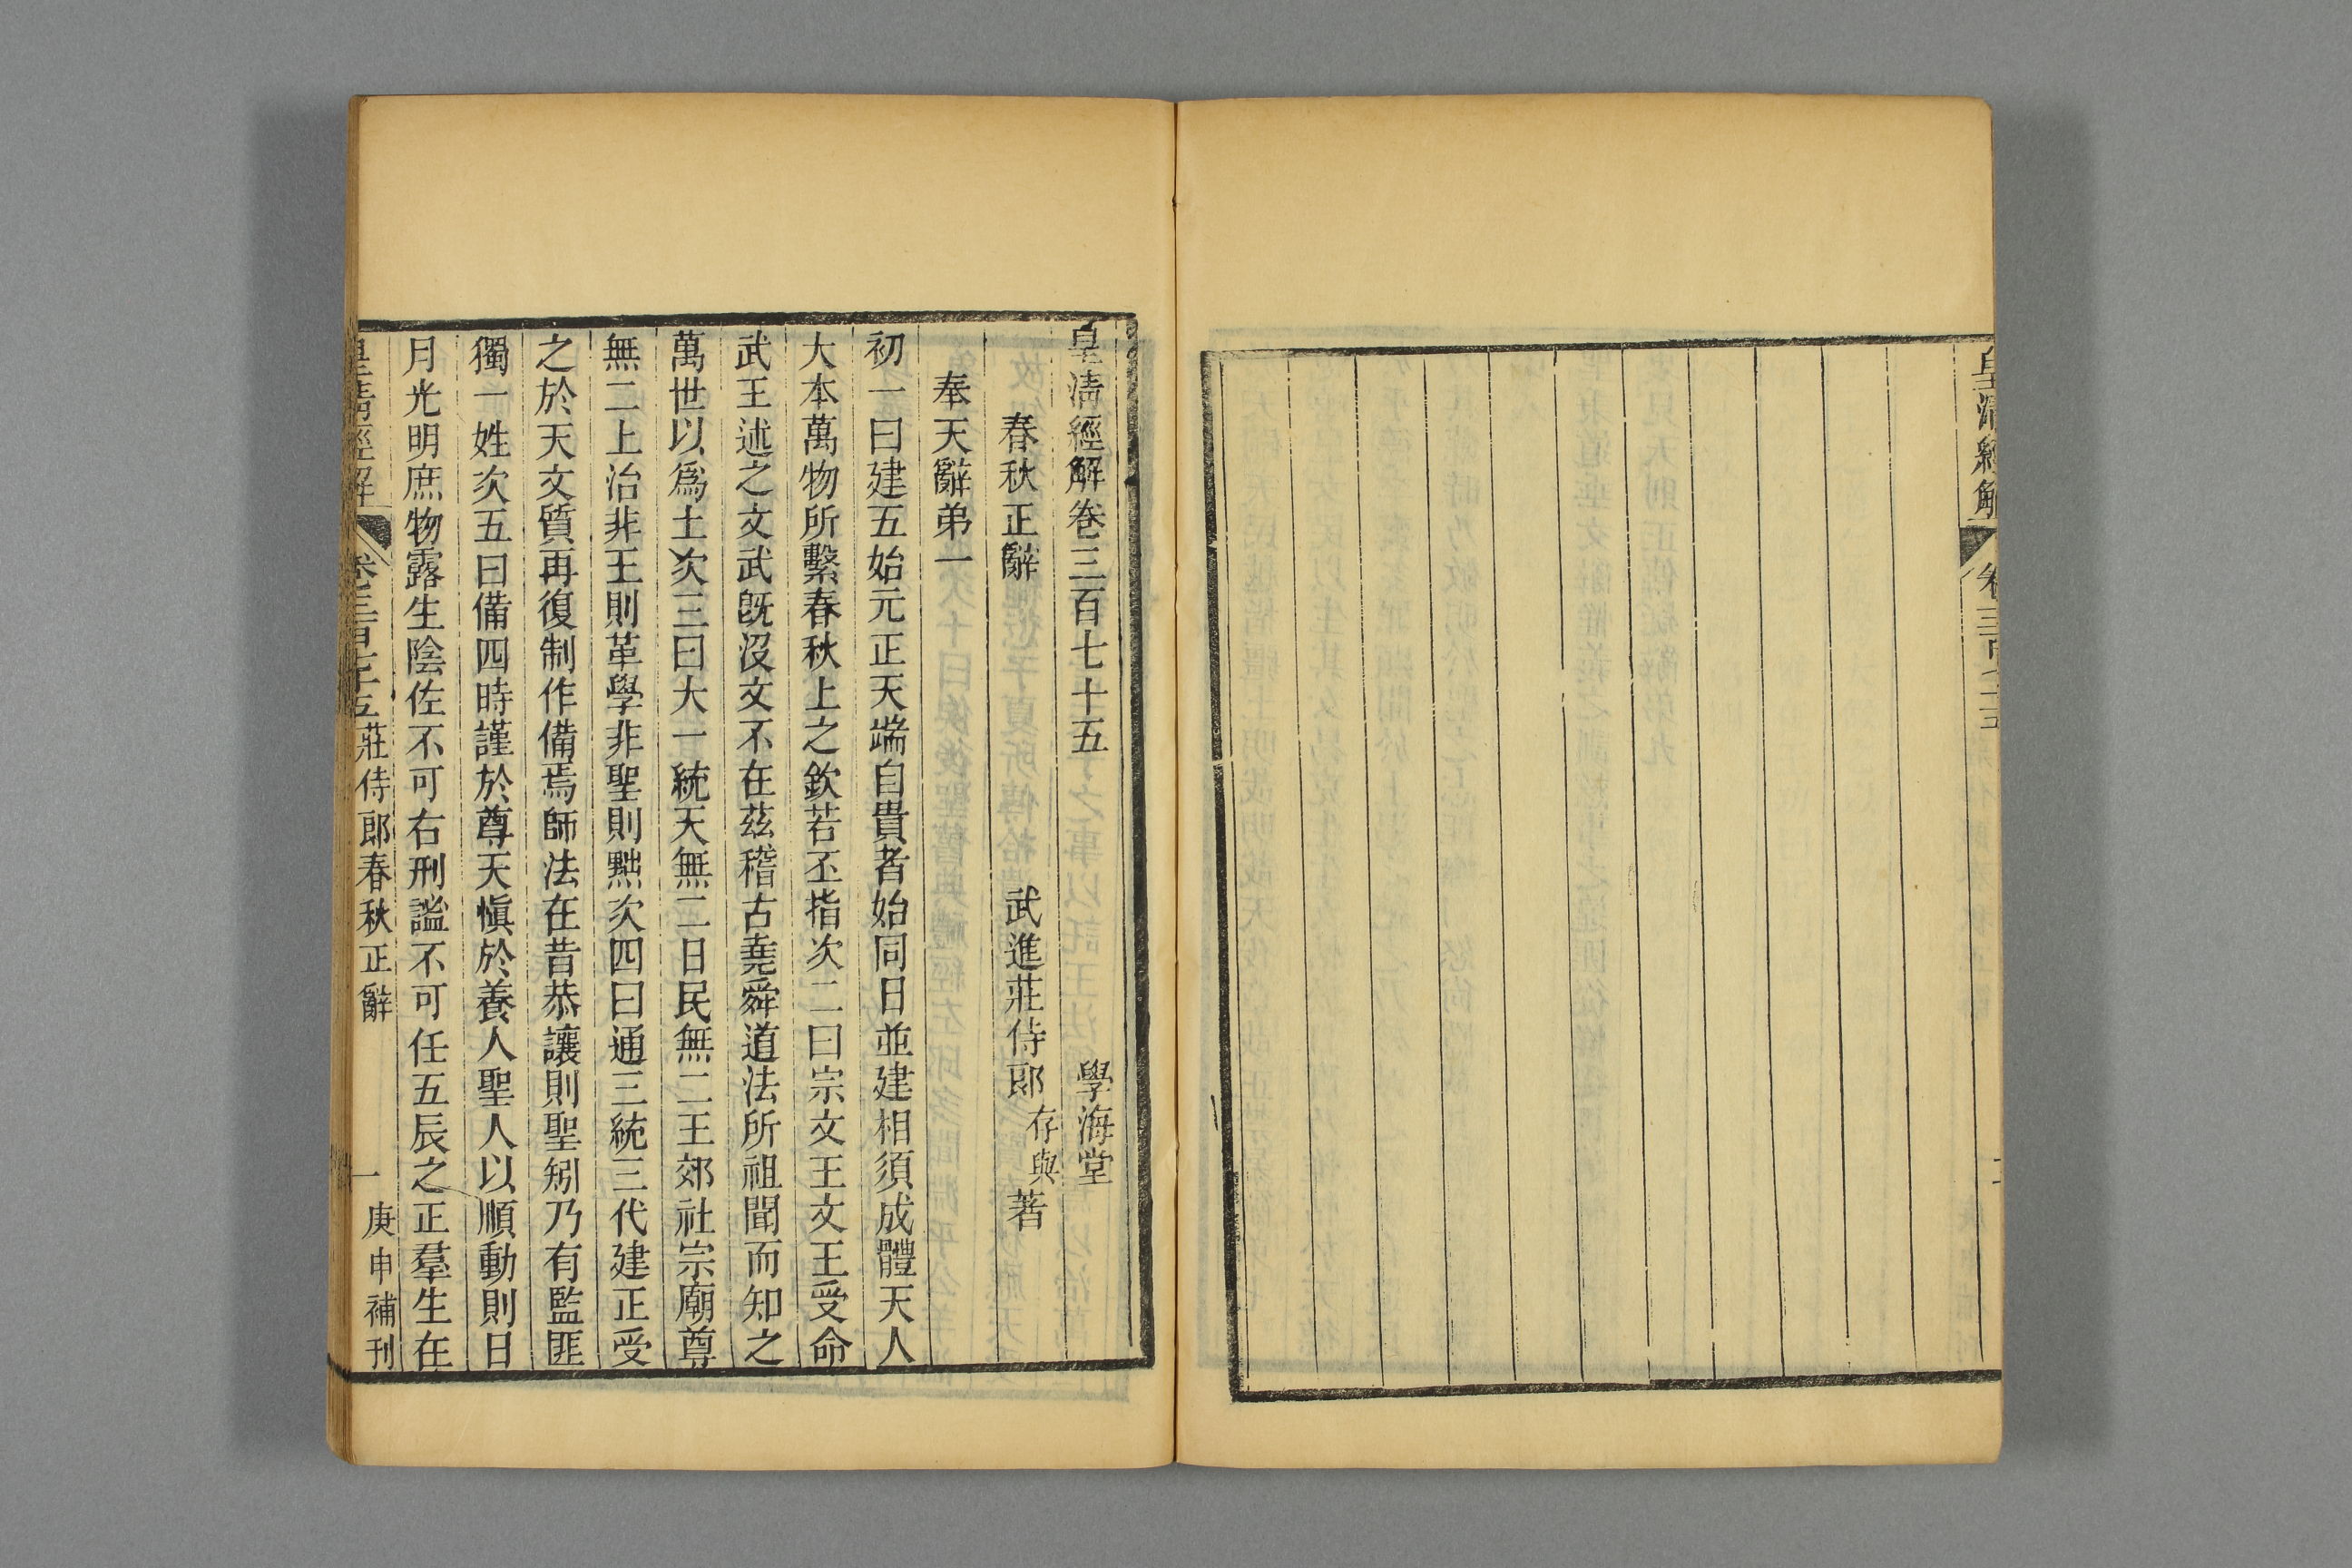 皇清經解
皇清經解卷三百七十五
學海堂
春秋正辭
武進莊侍郎存與著
奉天辭弟一
初一曰建五始元正天端自貴者始同日並建相須成體天人
大本萬物所繫春秋上之欽若丕指次二曰宗文王文王受命
武王述之文武旣沒文不在茲稽古堯舜道法所祖聞而知之
萬世以爲土次三曰大一統天無二日民無二王郊社宗廟尊
無二上治非王則革學非聖則黜次四曰通三統三代建正受
之於天文質再復制作備焉師法在昔恭讓則聖矧乃有監匪
獨一姓次五曰備四時謹於尊天愼於養人聖人以順動則日
月光明庶物露生陰佐不可右刑謐不可任五辰之正羣生在
皇清經解 卷三百七十五莊侍郎春秋正辭 一 庚申補刊